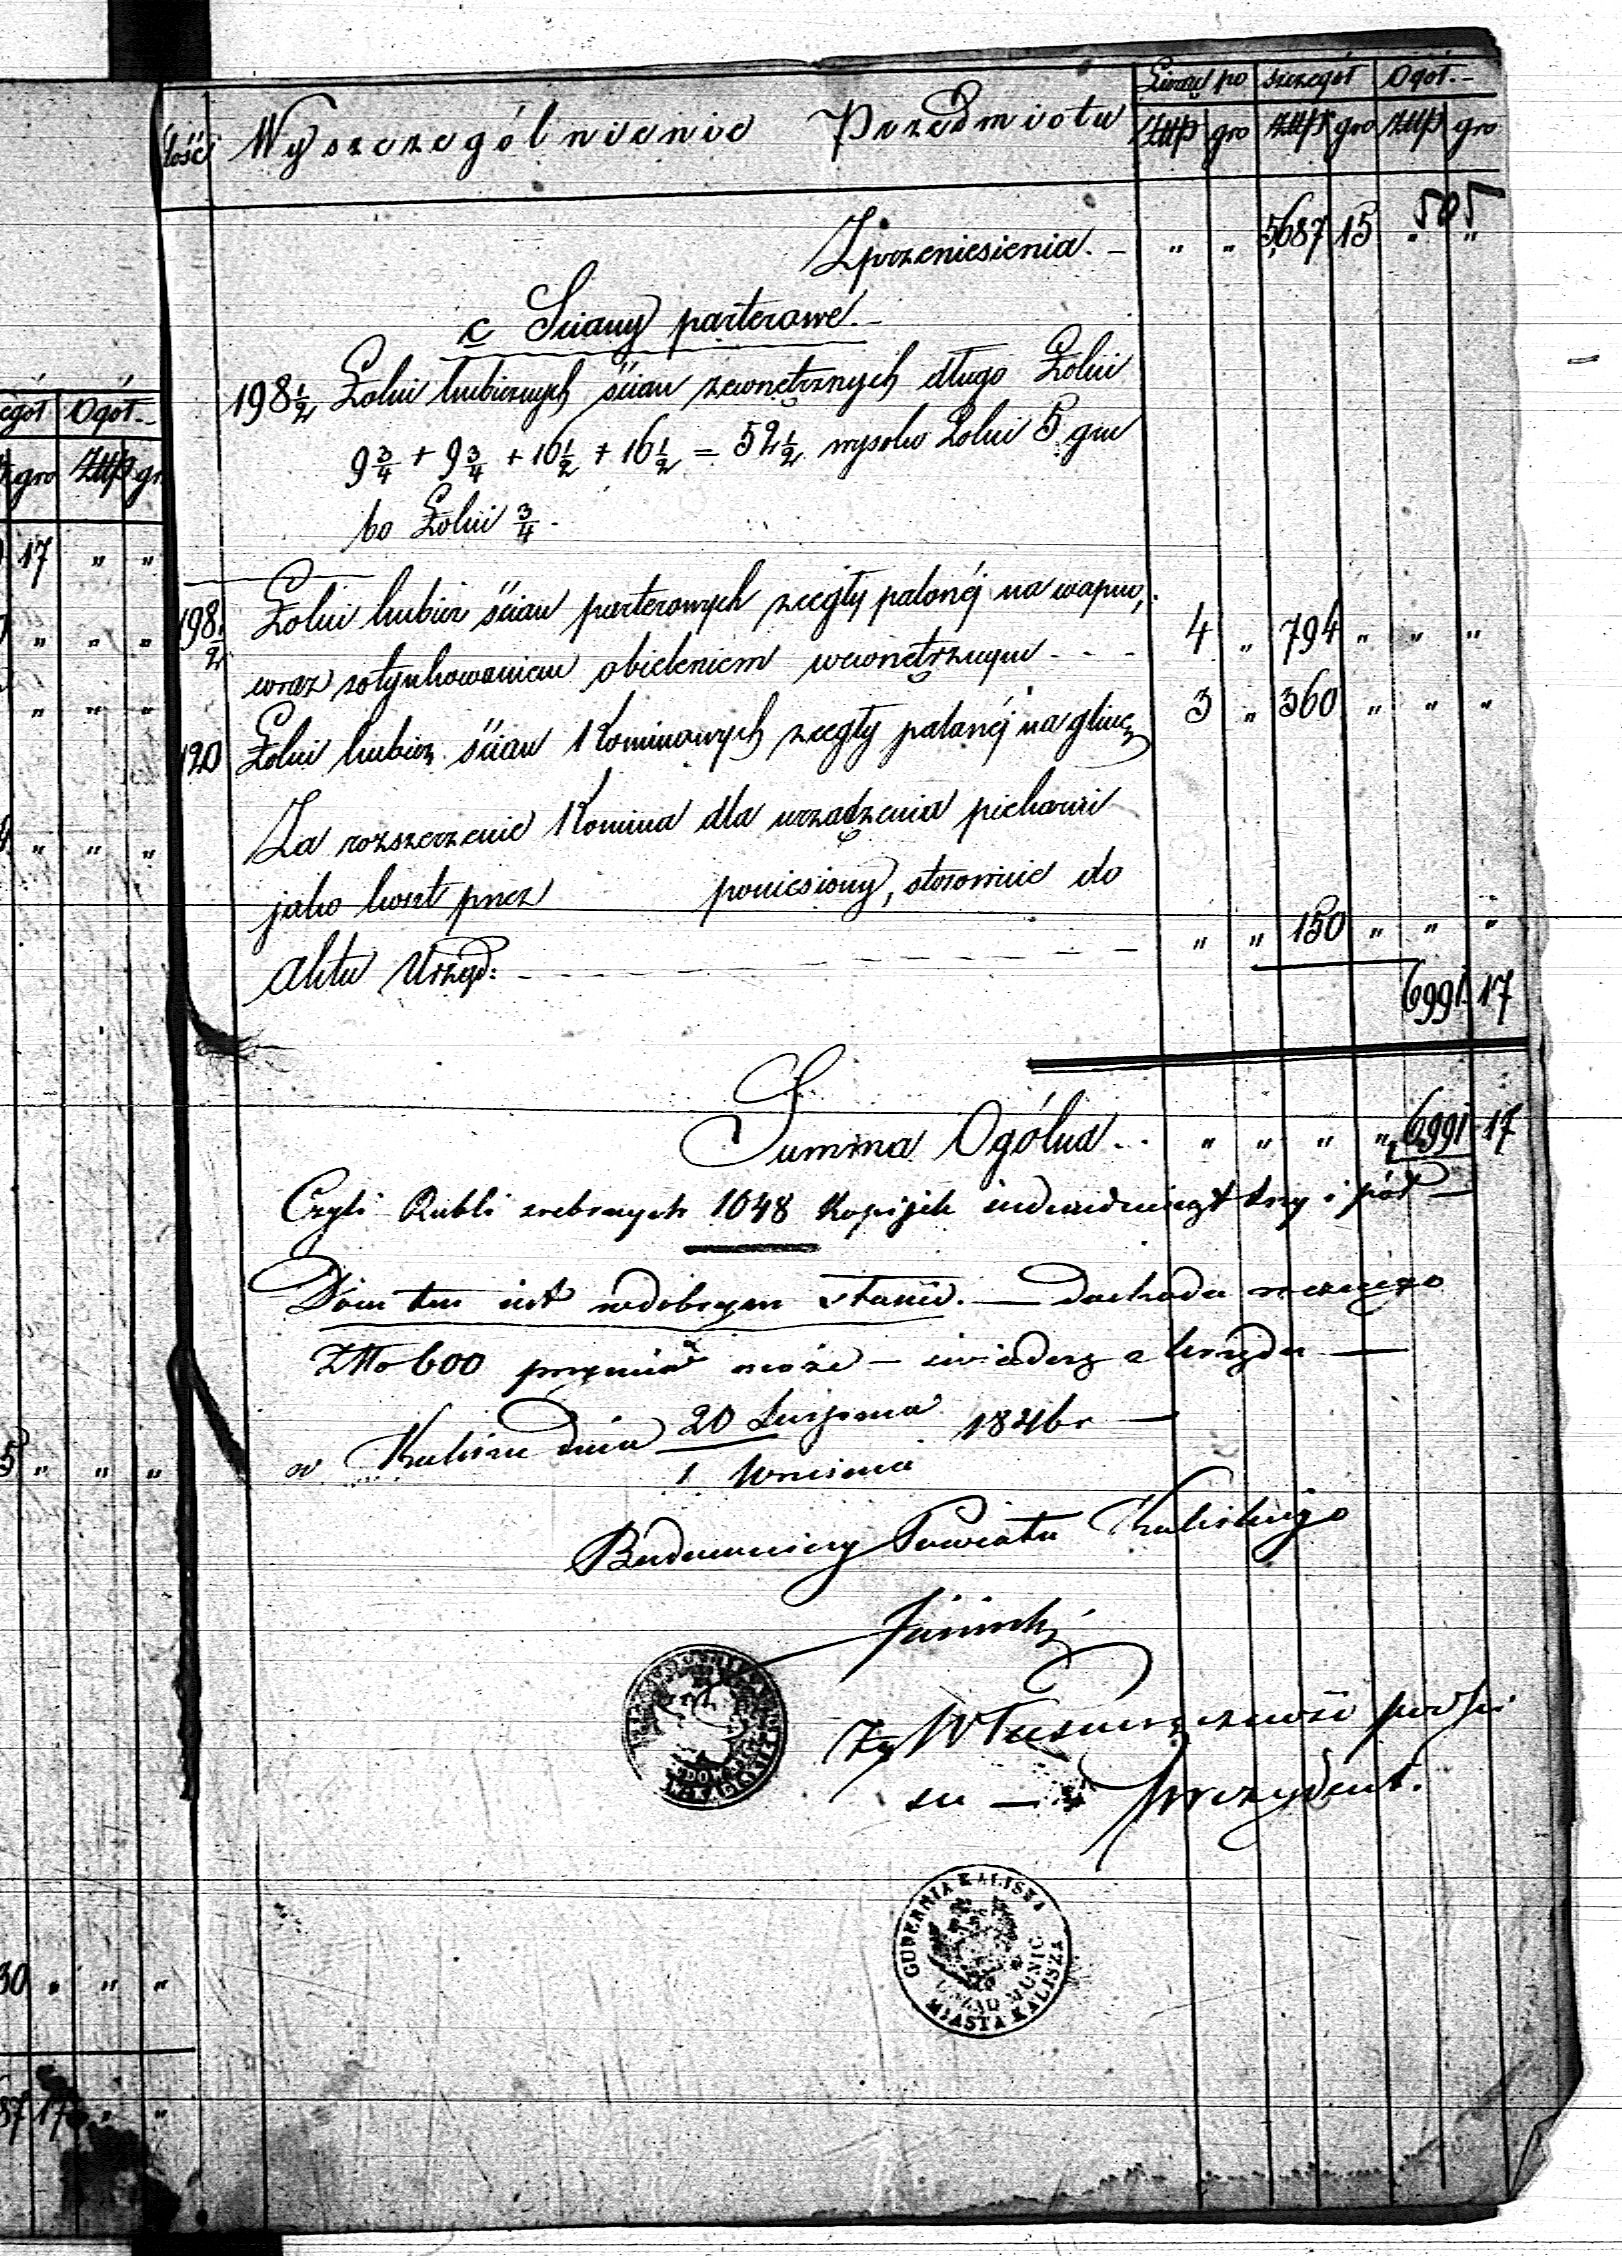 egół Ogół.-
gro Złłp gr
17 " "
" " "
" " "
" " "
5 " " "
30 " " "
87 17 " "
Liczą po szczegół Ogół.-
Ilość Wyszczególnienie Przedmiotu Złłp gro Złłp gro Złłp gro
505
Zprzeniesienia. - " " 5687 15 " "
c Sciany parterowe.-
198½ Łokci kubicznych ścian zewnętrznych długo Łokci
9¾ + 9¾ + 16½ + 16½ = 52½ wysoko Łokci 5 gru
bo Łokci ¾.
198½ Łokci kubicz ścian parterowych zcegły palonéj na wapno,
wraz zotynkowaniem obieleniem wewnętrznym - - - 4 " 794 " " "
120 Łokci kubicz ścian Kominowych zcegły palonéj na glinę 3 " 360 " " "
Za rozszerzenie Komina dla urządzenia piekarni
jako koszt przez poniesiony, stosownie do
aktu Urzęd: - - - - - " " 150 " " "
6991 17
Summa Ogólna. . " " " " 6991 17
Czyli Rubli srebrnych 1048 Kopijek siedmdziesiąt trzy i pół —
Dom ten jest wdobrym stanie. — Dochodu rocznego
Złło 600 przynieść może — świadczę z Urzędu —
w Kaliszu dnia 20 Sierpnia 1846 r —
1 Września
Budowniczy Powiatu Kaliskiego
Zg Własnoręczność podpi
su — Prezydent.
GUBERNIA KALISZA
URZĄD MUNIC
MIASTA KALISZA